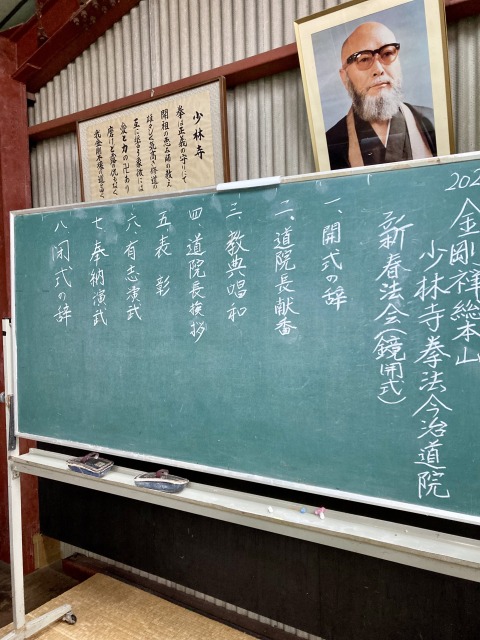 202
金剛禅総本山
少林寺拳法今治道院
新春法会(鏡開式)
一、開式の辞
二、道院長献香
三、教典唱和
四 道院長挨拶
五 表 彰
六、有志演武
七 奉納演武
八 閉式の辞
少林寺
拳は正義の守にて
開祖の
の教え
愛と力の卍あり